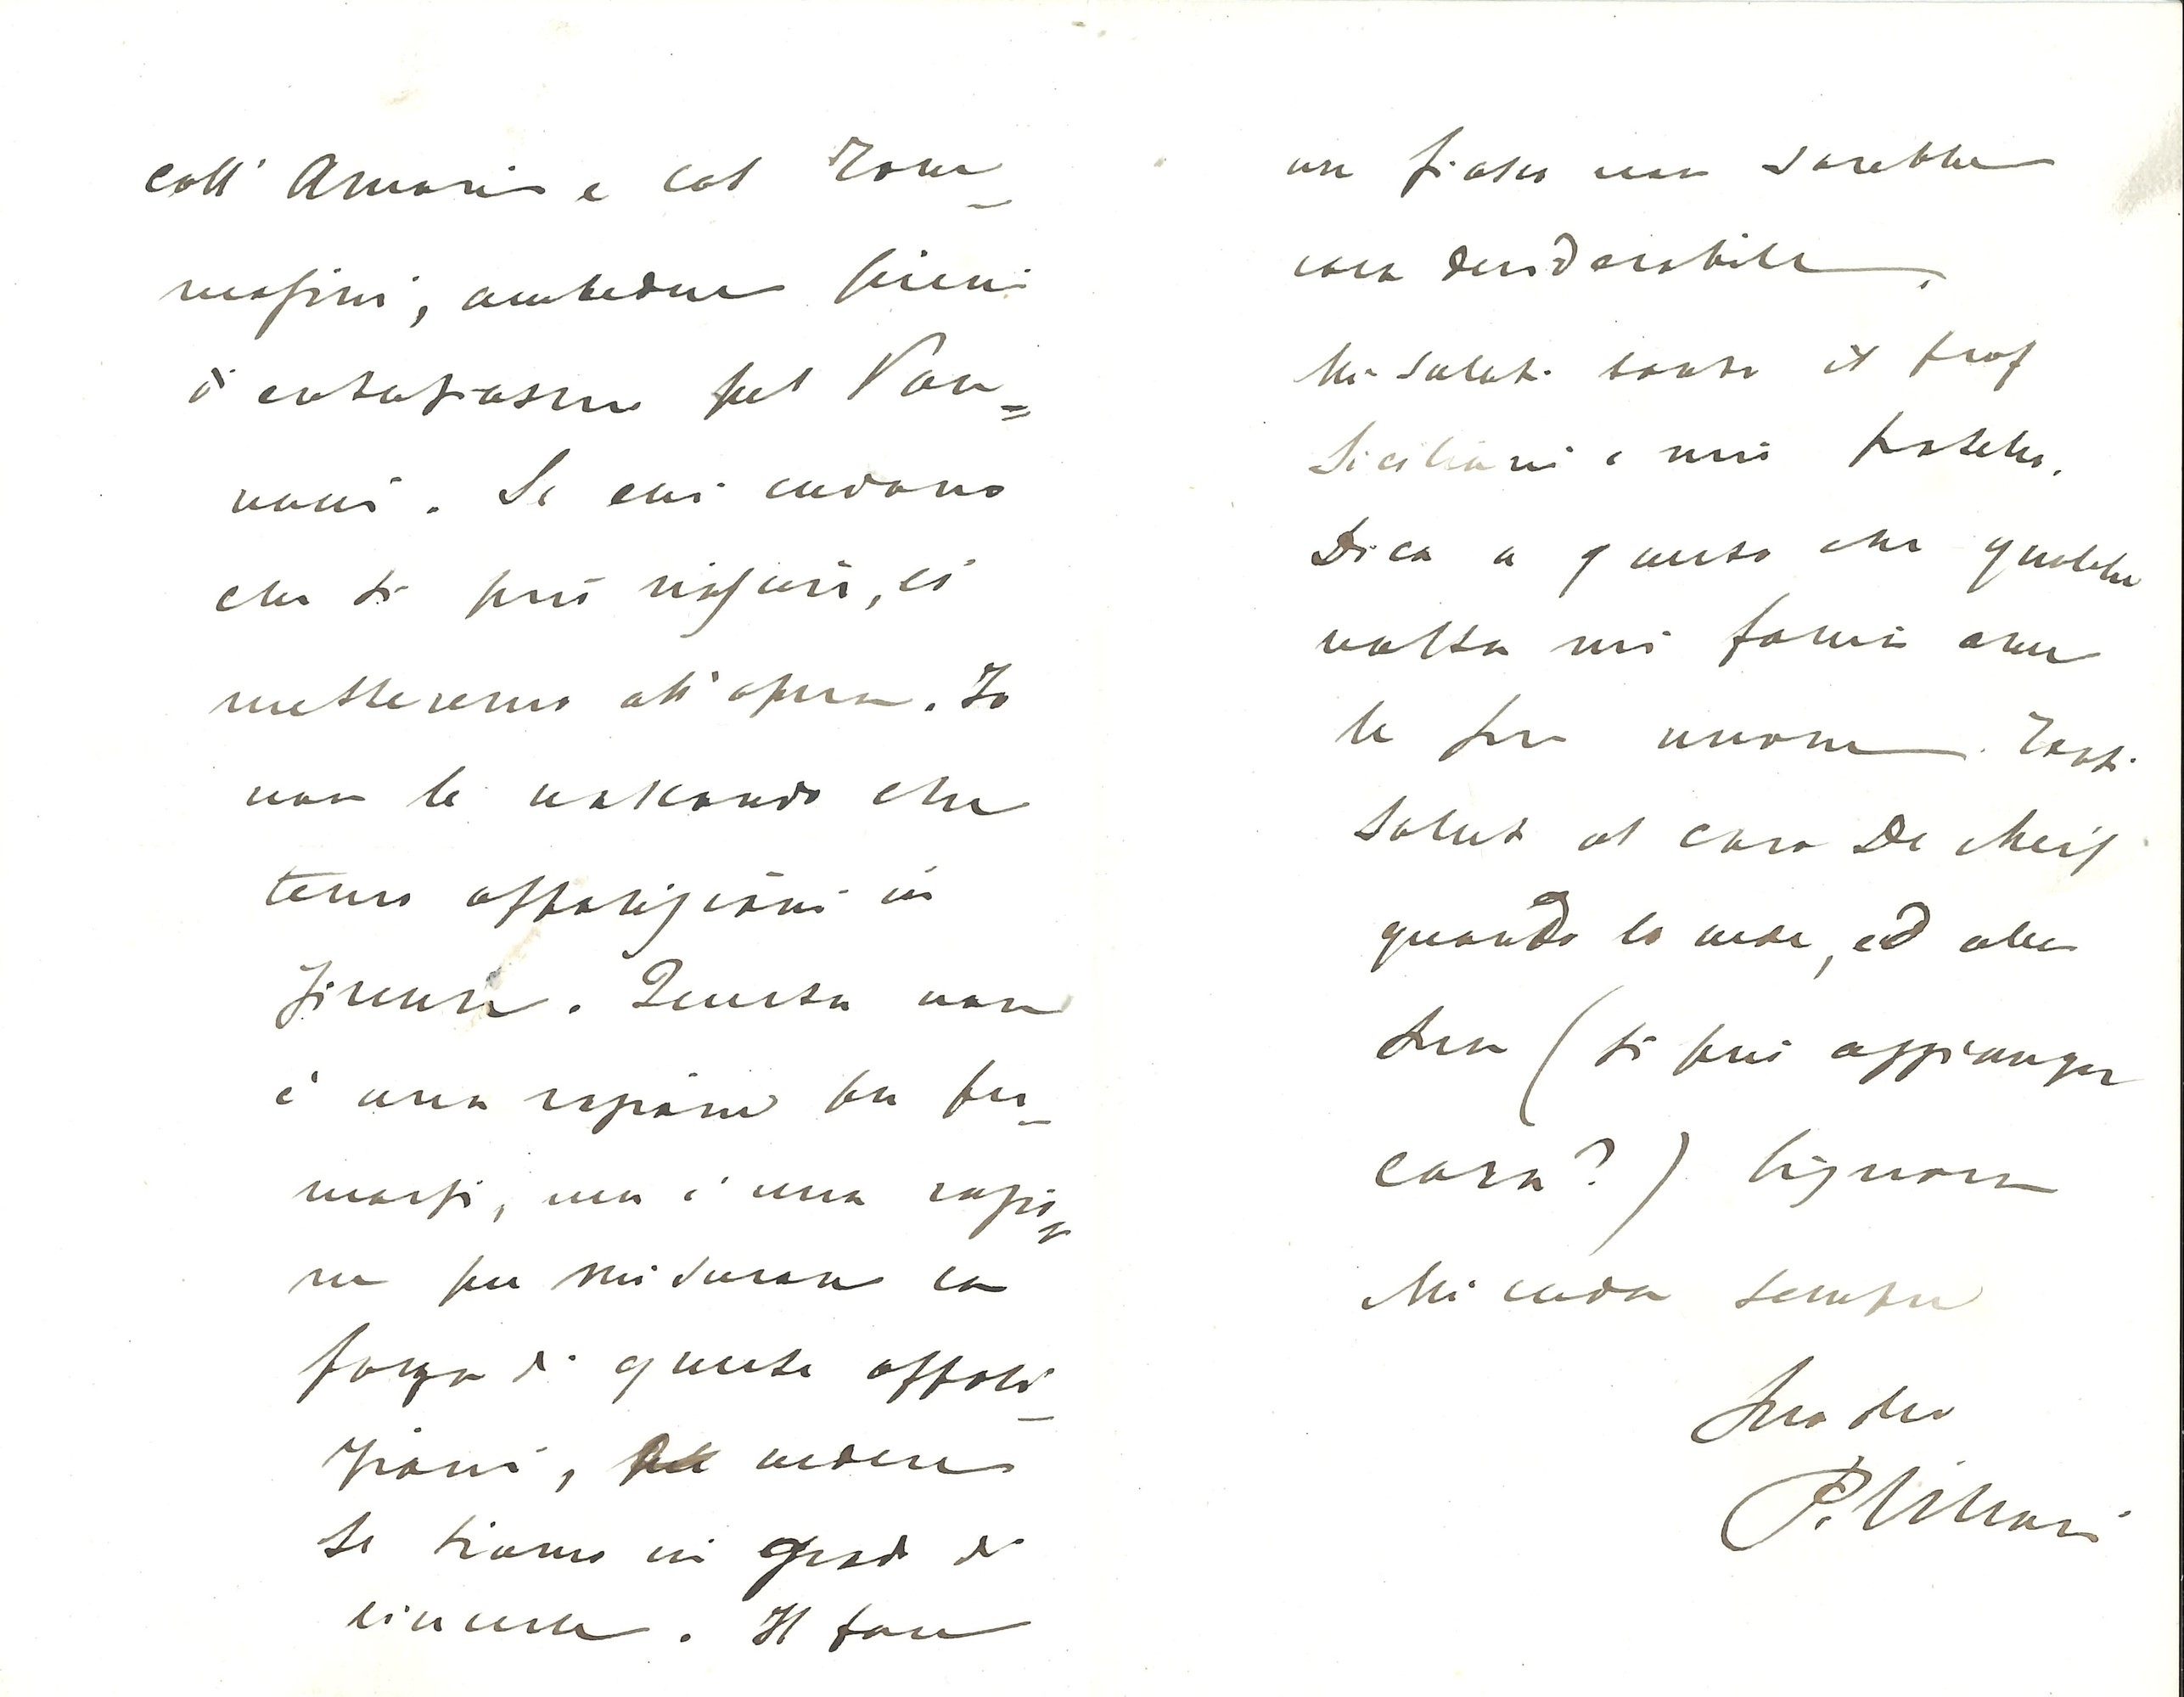 coll' Amari e col Tom-
masini, ambedue pieni
d'entusiasmo pel Van=
nucci. Se essi credono
che si può riuscire, ci
metteremo all'opera. Io
non le nascondo che
temo opposizioni in
Firenze. Questa non
è una ragione per fer-
marsi, ma è una ragio=
ne per misurare la
forza di queste opposi-
zioni, vedere
se siamo in grado di
vincerle. Il fare
un fiasco non sarebbe
cosa desiderabile.
Mi saluti tanto il prof
Siciliani e mio fratello.
Dica a questo che qualche
volta mi faccia avere
le sue nuove. Tanti
saluti al caro De Meis
quando lo vede, ed alla
sua (si può aggiunger
cara?) signora
Mi creda sempre
Suo dev
P. Villari